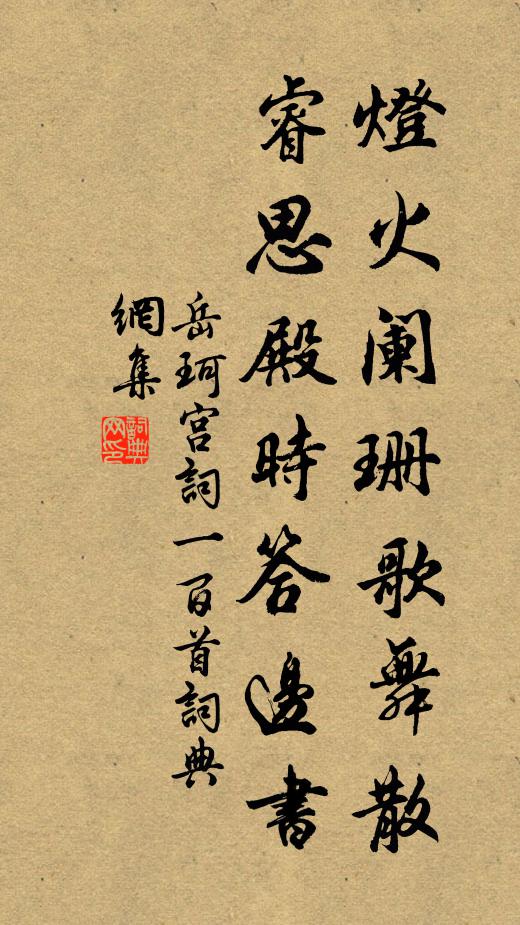 燈火闌珊歌舞散
睿思殿時答邊書
岳珂宮詞一百首詞典
網集
詞典
网印